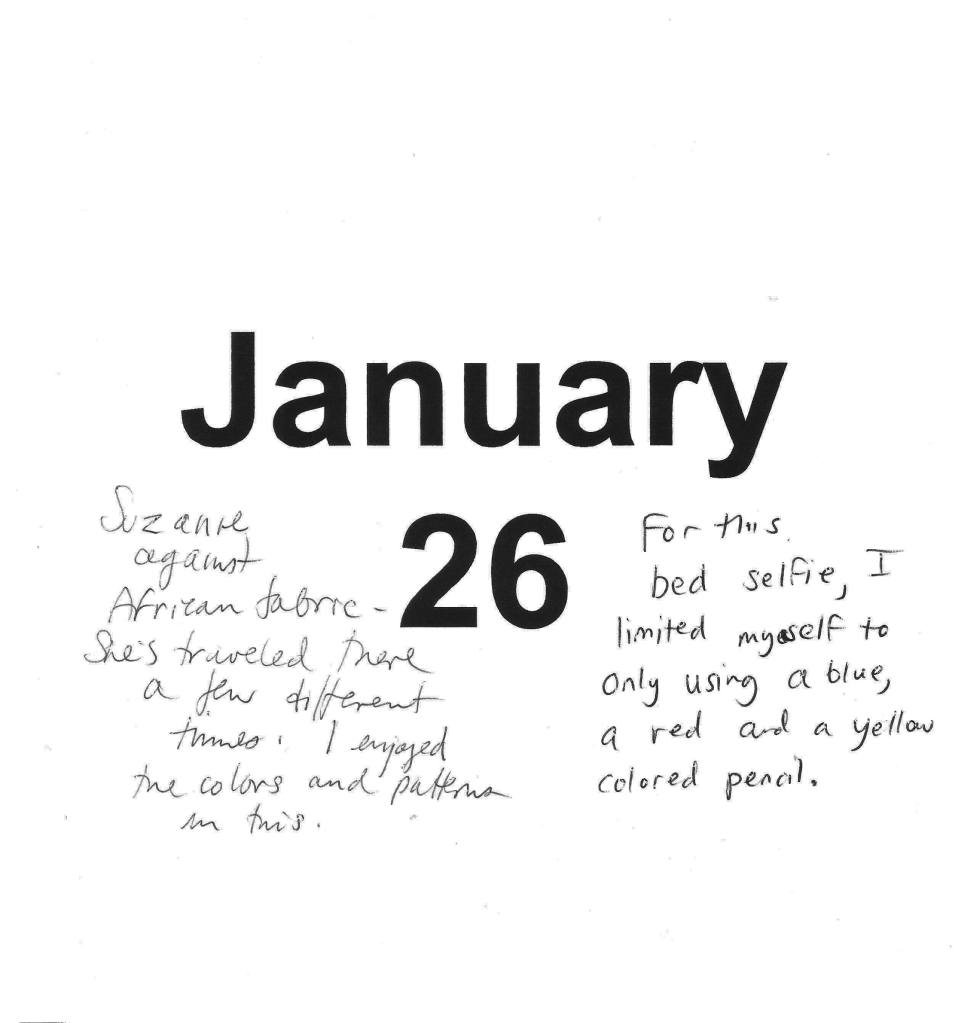 January
26
Suzanne
against
African fabric -
She's traveled there
a few different
times. I enjoyed
the colors and patterns
in this.
For this
bed selfie, I
limited myself to
only using a blue,
a red and a yellow
colored pencil.